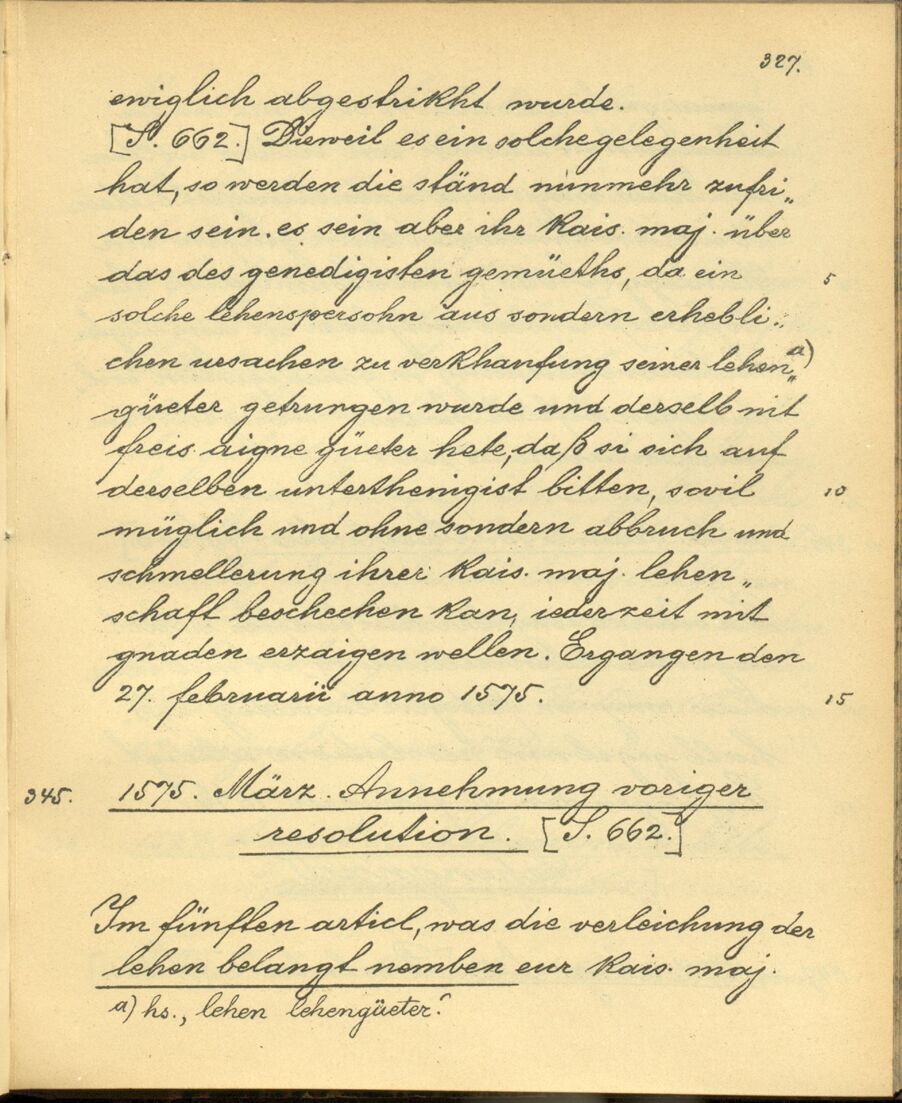 327.
ewiglich abgestrikht wurde.
[S. 662.] Dieweil es ein solche gelegenheit
hat, so werden die ständ nunmehr zufri„
den sein. es sein aber ihr kais. maj. über
das des genedigisten gemüeths, da ein 5
solche lehenspersohn aus sondern erhebli„
chen ursachen zu verkhaufung seiner lehen„a)
güeter getrungen wurde und derselb nit
freis aigne güeter hete, daß si sich auf
derselben unterthenigist bitten, sovil 10
müglich und ohne sondern abbruch und
schmellerung ihrer kais. maj. lehen„
schaft beschechen kan, iederzeit mit
gnaden erzaigen wellen. Ergangen den
27. februarii anno 1575. 15
345. 1575. März. Annehmung voriger
resolution. [S. 662.]
Im fünften articl, was die verleichung der
lehen belangt nemben eur kais. maj.
a) hs., lehen lehengüeter.‘